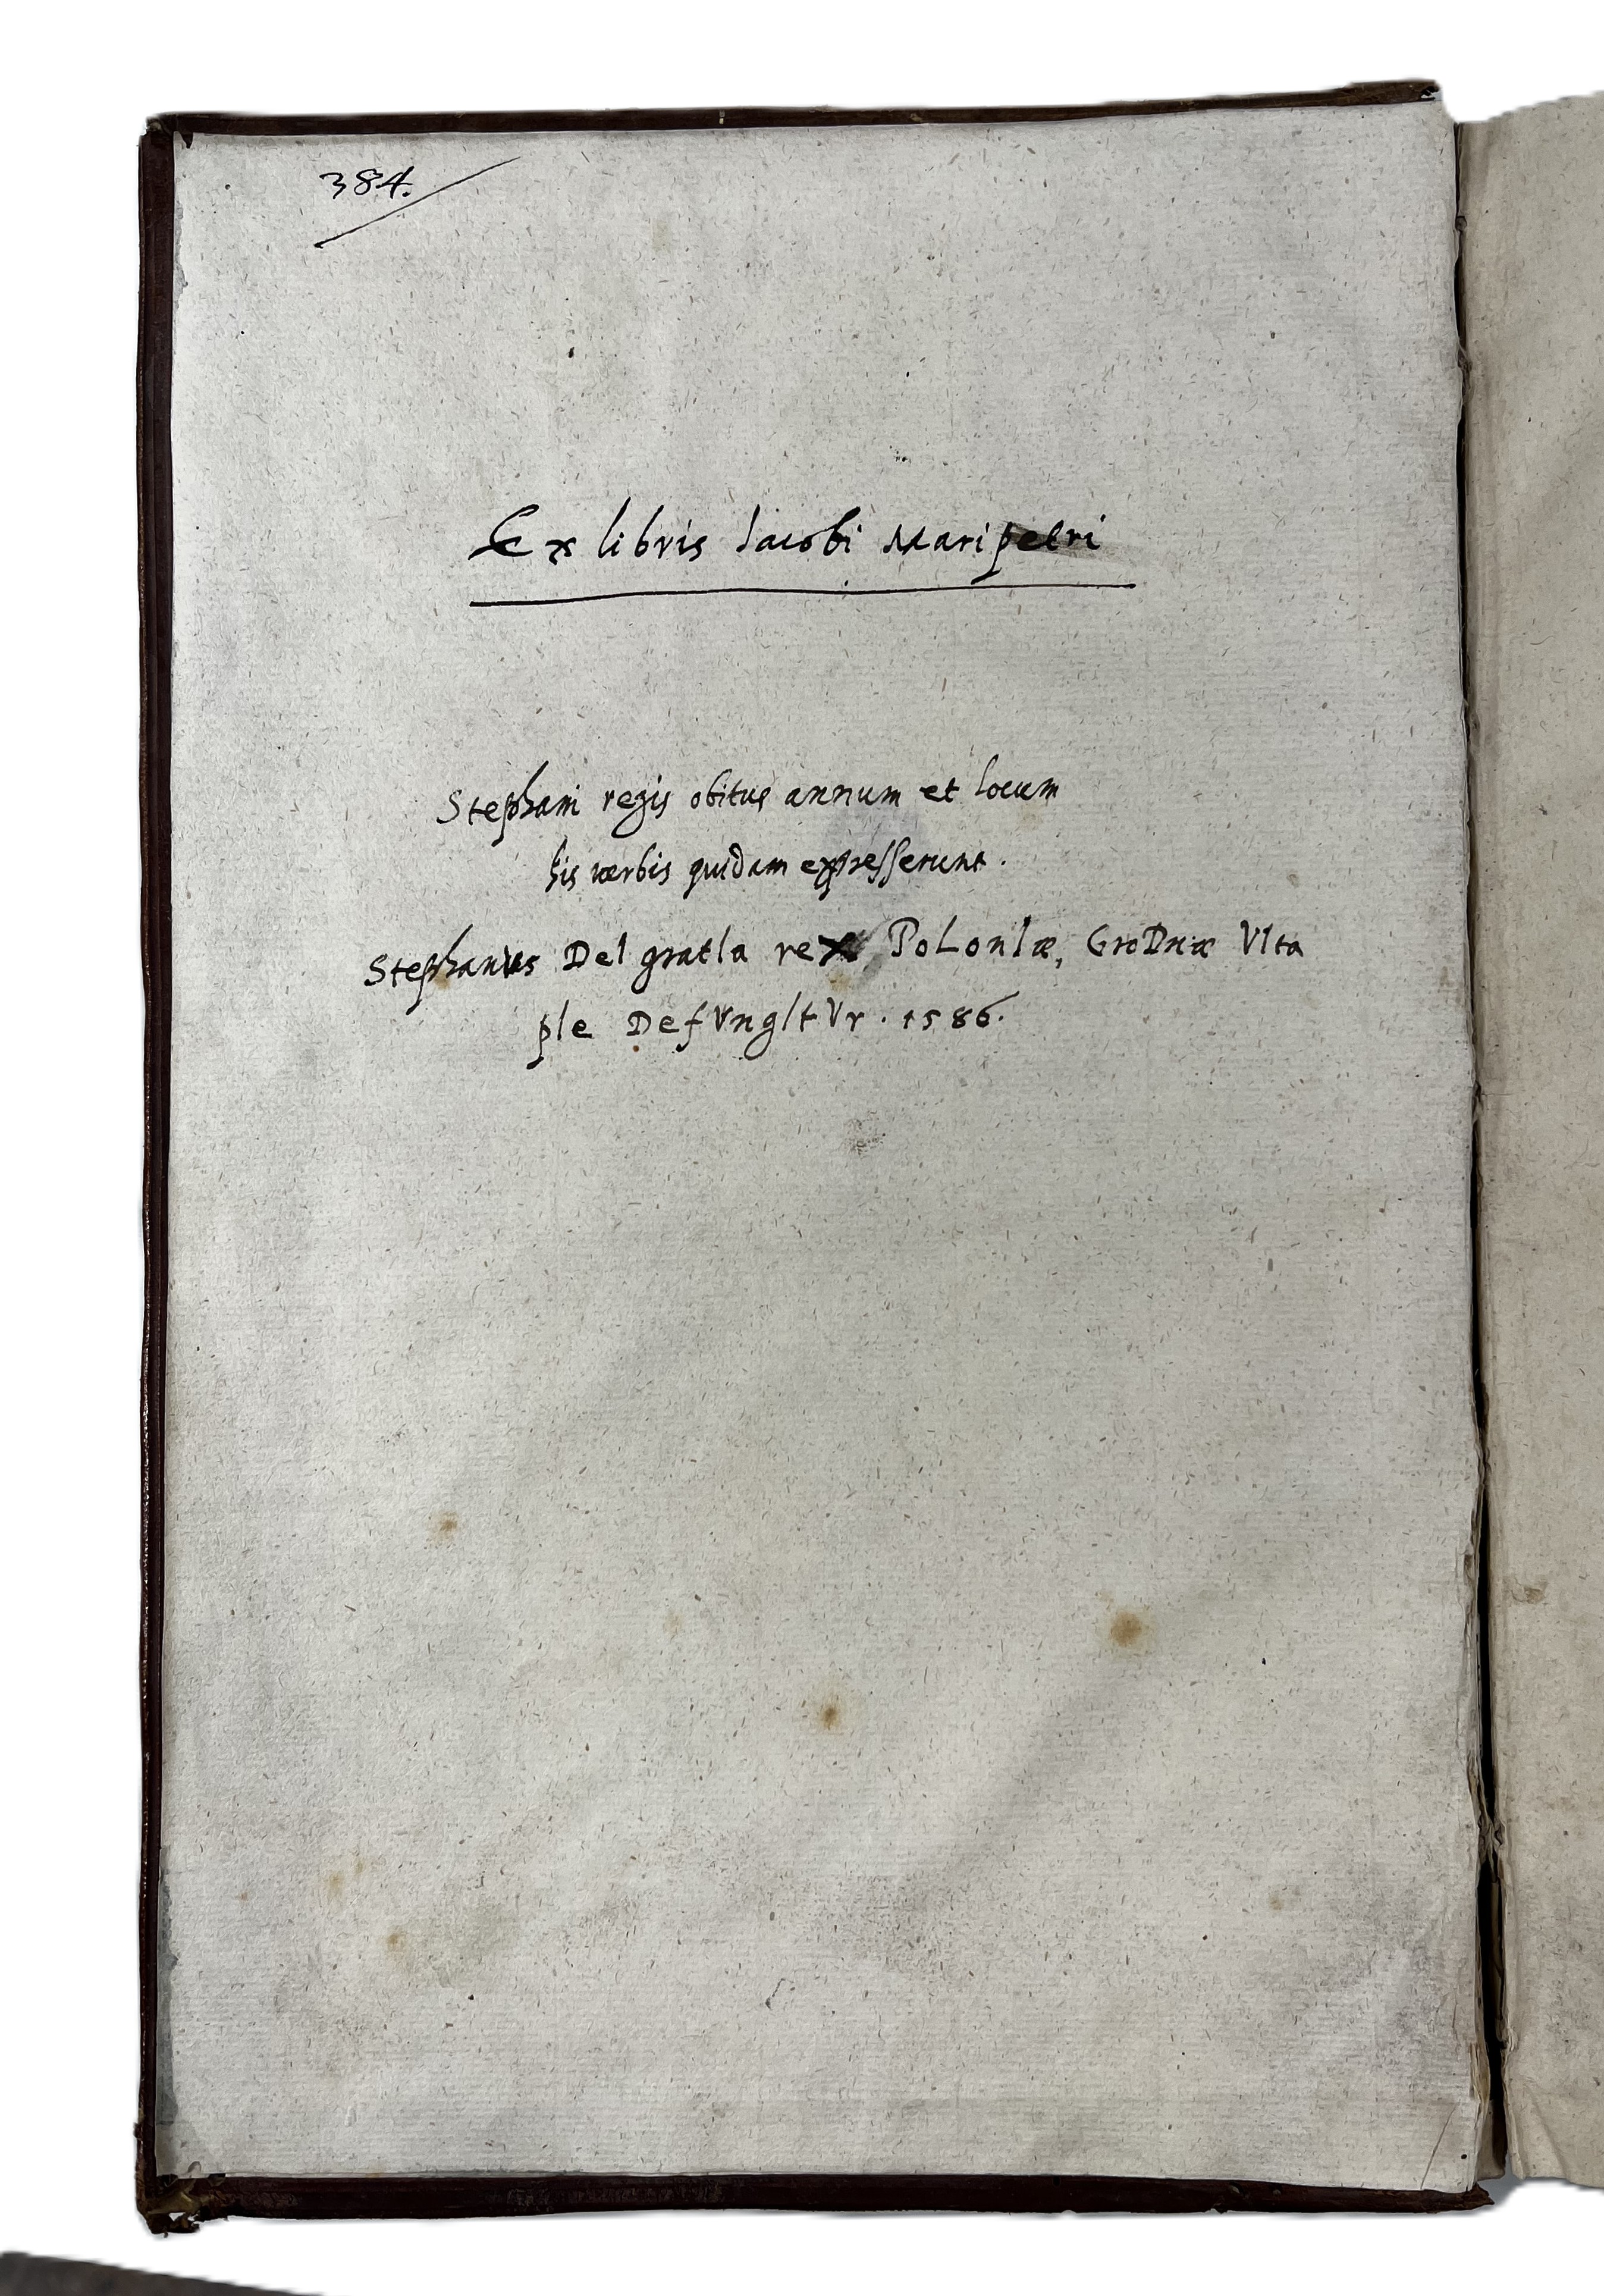 384.
Ex libris Iacobi Maripetri
Stephani regis obitus annum et locum
his verbis quidam expresserunt.
StephanVs DeI gratIa reX PoLonIæ, GroDnæ VIta
pIe DefVngItVr. 1586.